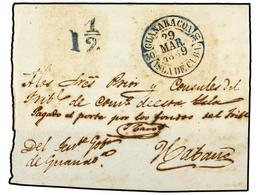 1 1/2
GUANABACOA
29
MAR.
1849
ISLA DE CUBA
A los Sres Prior y Consules del
Trib.l de com.o de esta Isla
Pagado el porte por los fondos del Trib.l
Del
de Guanab.a
Habana